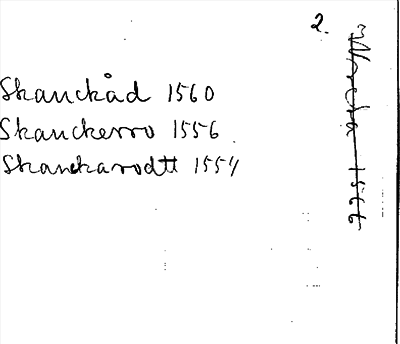 2.
Skanckåd 1560
Skanckerro 1556
Skanckarodtt 1554
1566